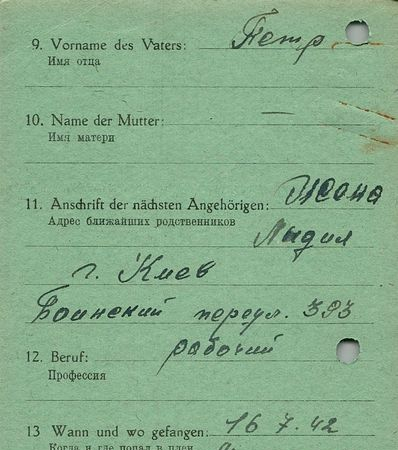 9. Vorname des Vaters: Петр
Имя отца
10. Name der Mutter:
Имя матери
11. Anschrift der nächsten Angehörigen: Жена
Адрес ближайших родственников Лидия
г. Киев
переул. 393
12. Beruf: рабочий
Профессия
13 Wann und wo gefangen: 16 7. 42
Когда и где попал в плен